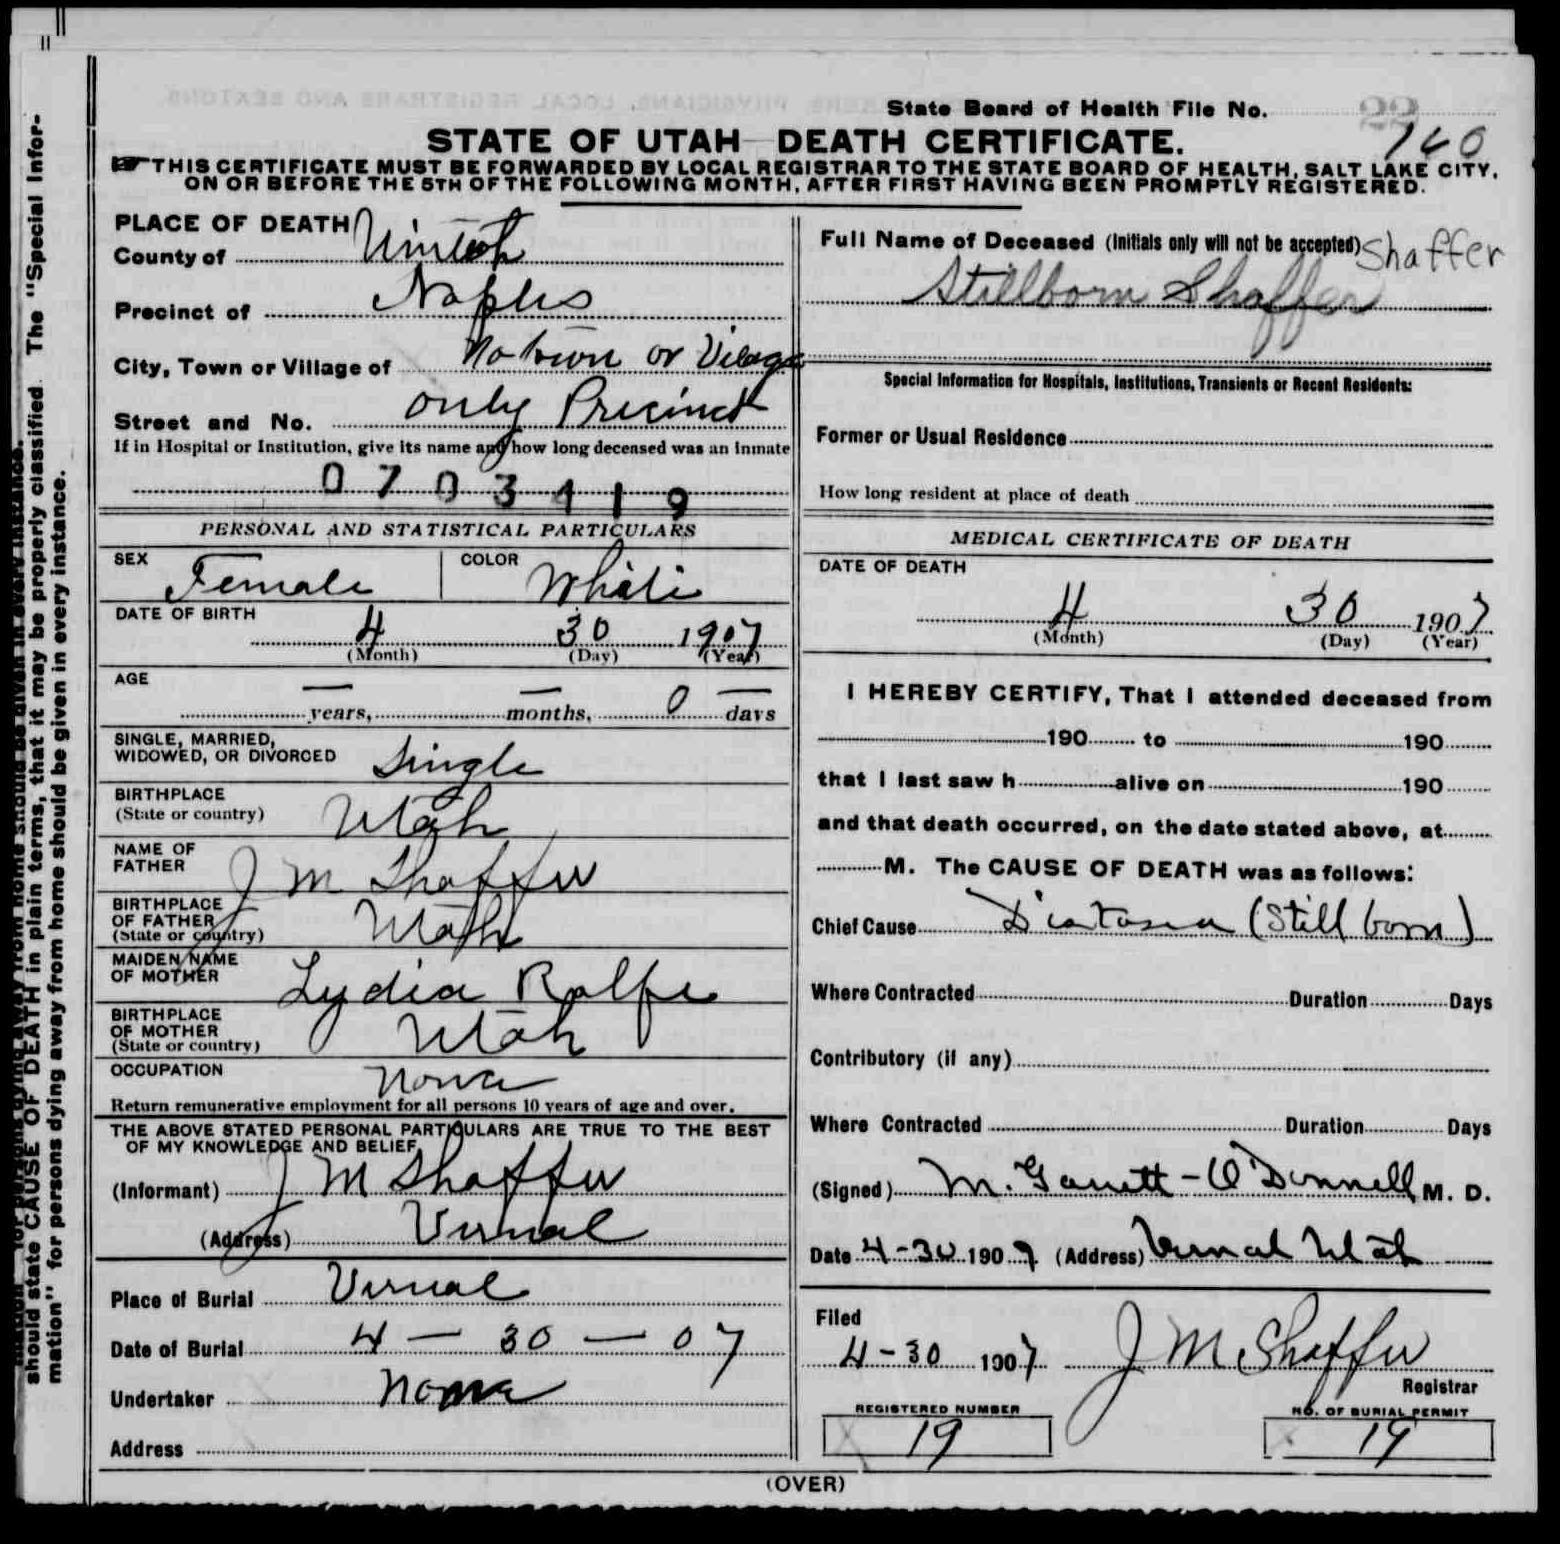 State Board of Health File No.
22
160
STATE OF UTAH—DEATH CERTIFICATE.
THIS CERTIFICATE MUST BE FORWARDED BY LOCAL REGISTRAR TO THE STATE BOARD OF HEALTH, SALT LAKE CITY,
ON OR BEFORE THE 5TH OF THE FOLLOWING MONTH, AFTER FIRST HAVING BEEN PROMPTLY REGISTERED.
PLACE OF DEATH
County of Uintah
Precinct of Naples
City, Town or Village of No town or Vilage
Street and No. only Precinct
If in Hospital or Institution, give its name and how long deceased was an inmate
0703419
PERSONAL AND STATISTICAL PARTICULARS
SEX Female COLOR White
DATE OF BIRTH
4 30 1907
(Month) (Day) (Year)
AGE
— years, — months, 0 — days
SINGLE, MARRIED,
WIDOWED, OR DIVORCED Single
BIRTHPLACE
(State or country) Utah
NAME OF
FATHER J M Shaffer
BIRTHPLACE
OF FATHER
(State or country) Utah
MAIDEN NAME
OF MOTHER Lydia Rolfe
BIRTHPLACE
OF MOTHER
(State or country) Utah
OCCUPATION None
Return remunerative employment for all persons 10 years of age and over.
THE ABOVE STATED PERSONAL PARTICULARS ARE TRUE TO THE BEST
OF MY KNOWLEDGE AND BELIEF
(Informant) J M Shaffer
(Address) Vernal
Place of Burial Vernal
Date of Burial 4 — 30 — 07
Undertaker None
Address
Full Name of Deceased (Initials only will not be accepted) Shaffer
Stillborn Shaffer
Special Information for Hospitals, Institutions, Transients or Recent Residents:
Former or Usual Residence
How long resident at place of death
MEDICAL CERTIFICATE OF DEATH
DATE OF DEATH
4 30 1907
(Month) (Day) (Year)
I HEREBY CERTIFY, That I attended deceased from
190 to 190
that I last saw h alive on 190
and that death occurred, on the date stated above, at
M. The CAUSE OF DEATH was as follows:
Chief Cause (Still born)
Where Contracted Duration Days
Contributory (if any)
Where Contracted Duration Days
(Signed) M. Garrett-O'Donnell M. D.
Date 4-30 1907 (Address) Vernal Utah
Filed
4-30 1907 J M Shaffer
Registrar
REGISTERED NUMBER
19
NO. OF BURIAL PERMIT
19
(OVER)
should state CAUSE OF DEATH in plain terms, that it may be properly classified. The "Special Infor-
mation" for persons dying away from home should be given in every instance.